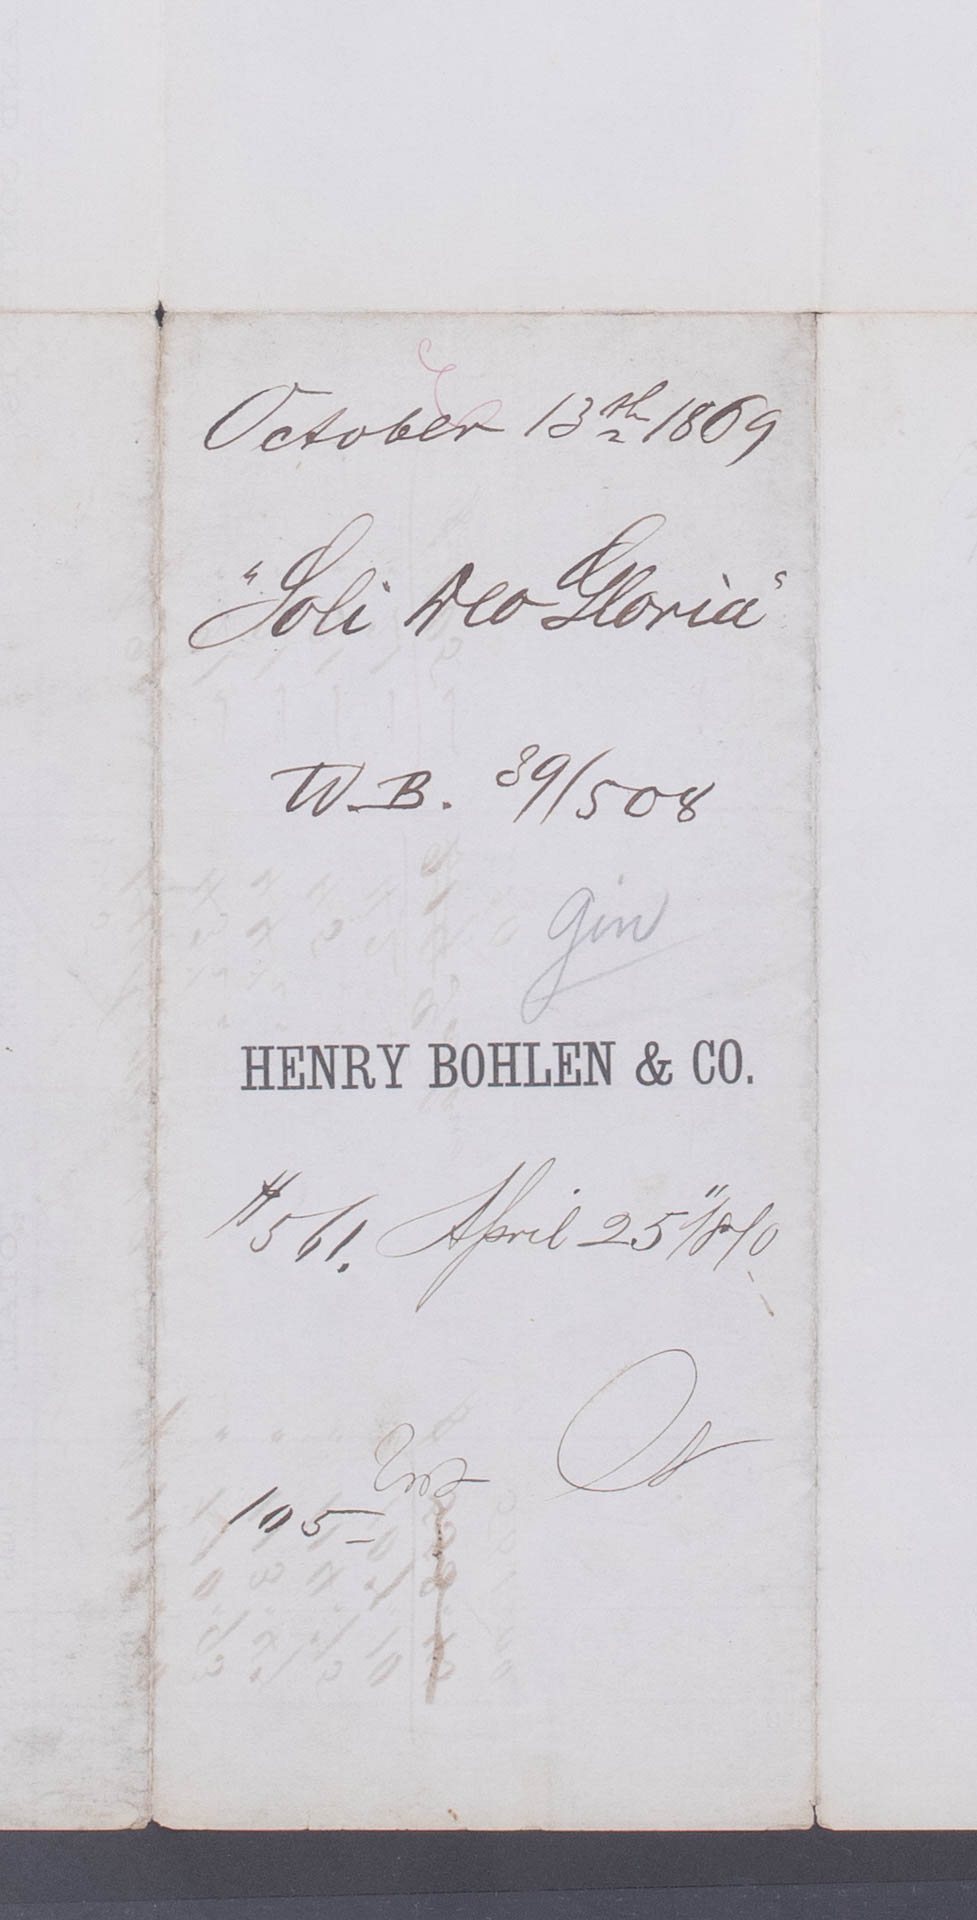 October 13th 1869
"Soli Deo Gloria"
W.B. 39/508
gin
HENRY BOHLEN & CO.
#561. April 25"/70
105-